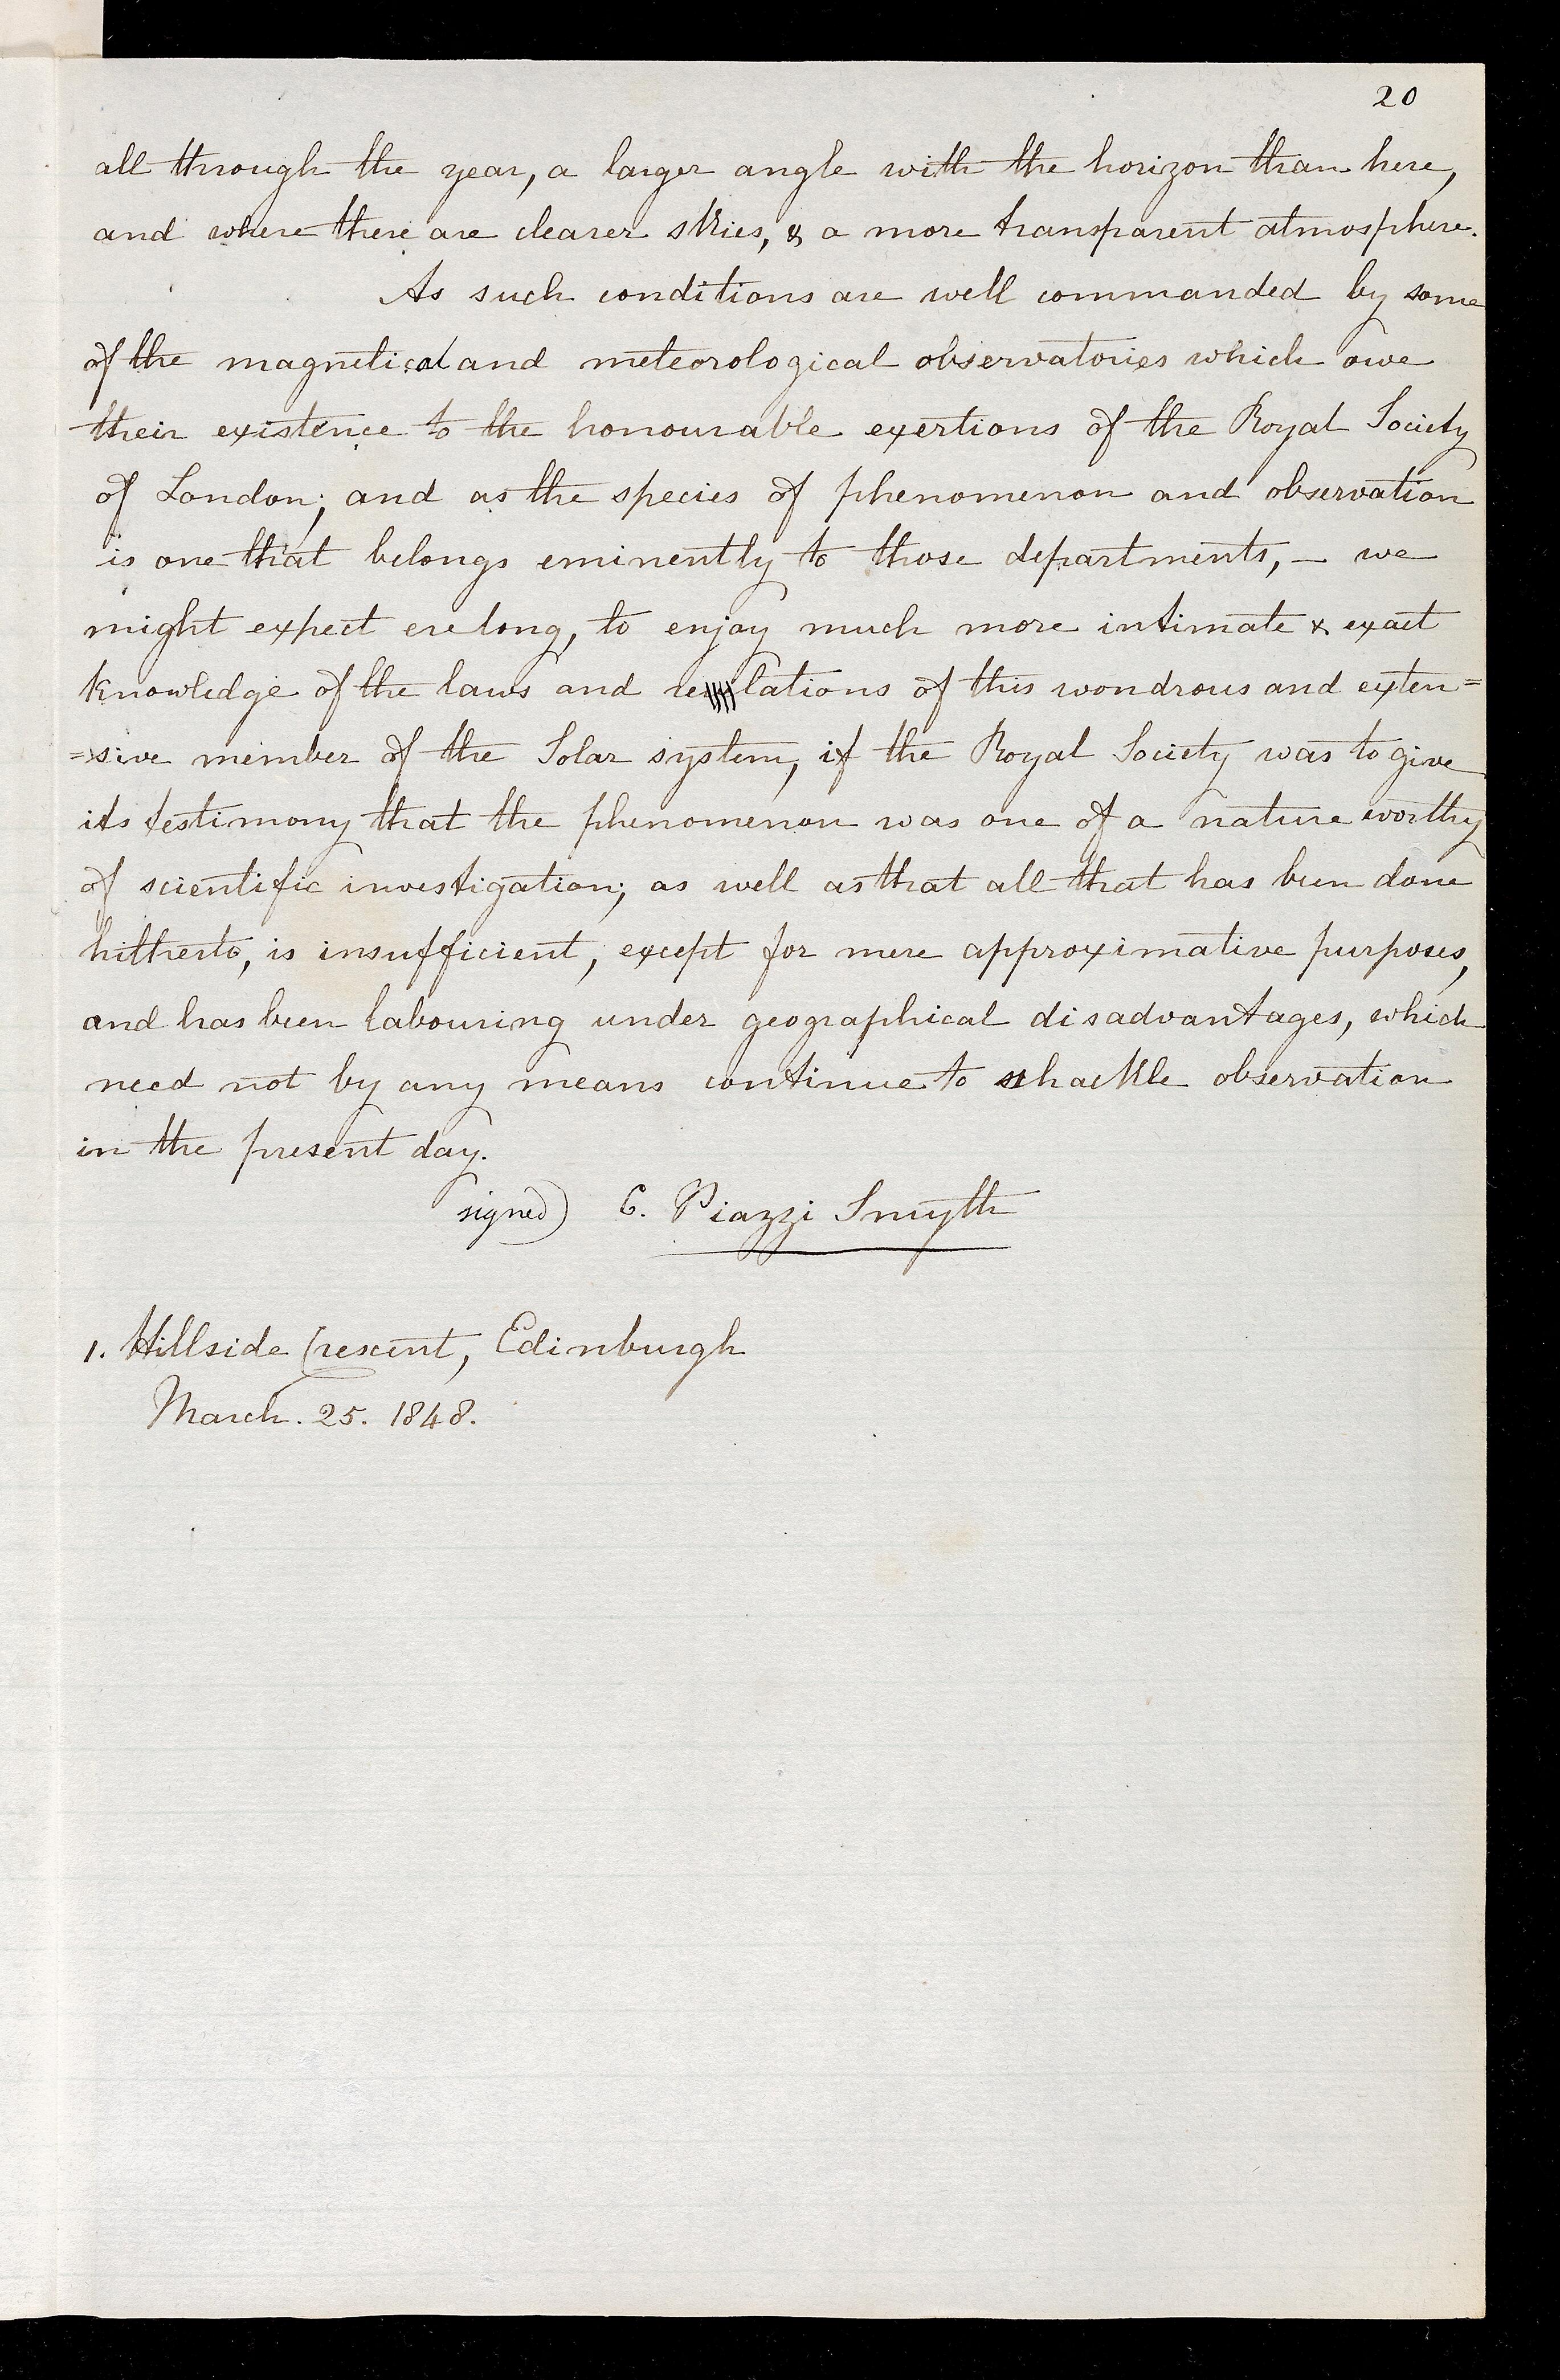 20
all through the year, a larger angle with the horizon than here,
and where there are clearer skies, & a more transparent atmosphere.
As such conditions are well commanded by some
of the magnetical and meteorological observatories which owe
their existence to the honourable exertions of the Royal Society
of London; and as the species of phenomenon and observation
is one that belongs eminently to those departments, — we
might expect ere long, to enjoy much more intimate & exact
knowledge of the laws and relations of this wondrous and exten=
=sive member of the Solar system, if the Royal Society was to give
its testimony that the phenomenon was one of a nature worthy
of scientific investigation; as well as that all that has been done
hitherto, is insufficient, except for mere approximative purposes,
and has been labouring under geographical disadvantages, which
need not by any means continue to shackle observation
in the present day.
signed) C. Piazzi Smyth
1. Hillside Crescent, Edinburgh
March. 25. 1848.